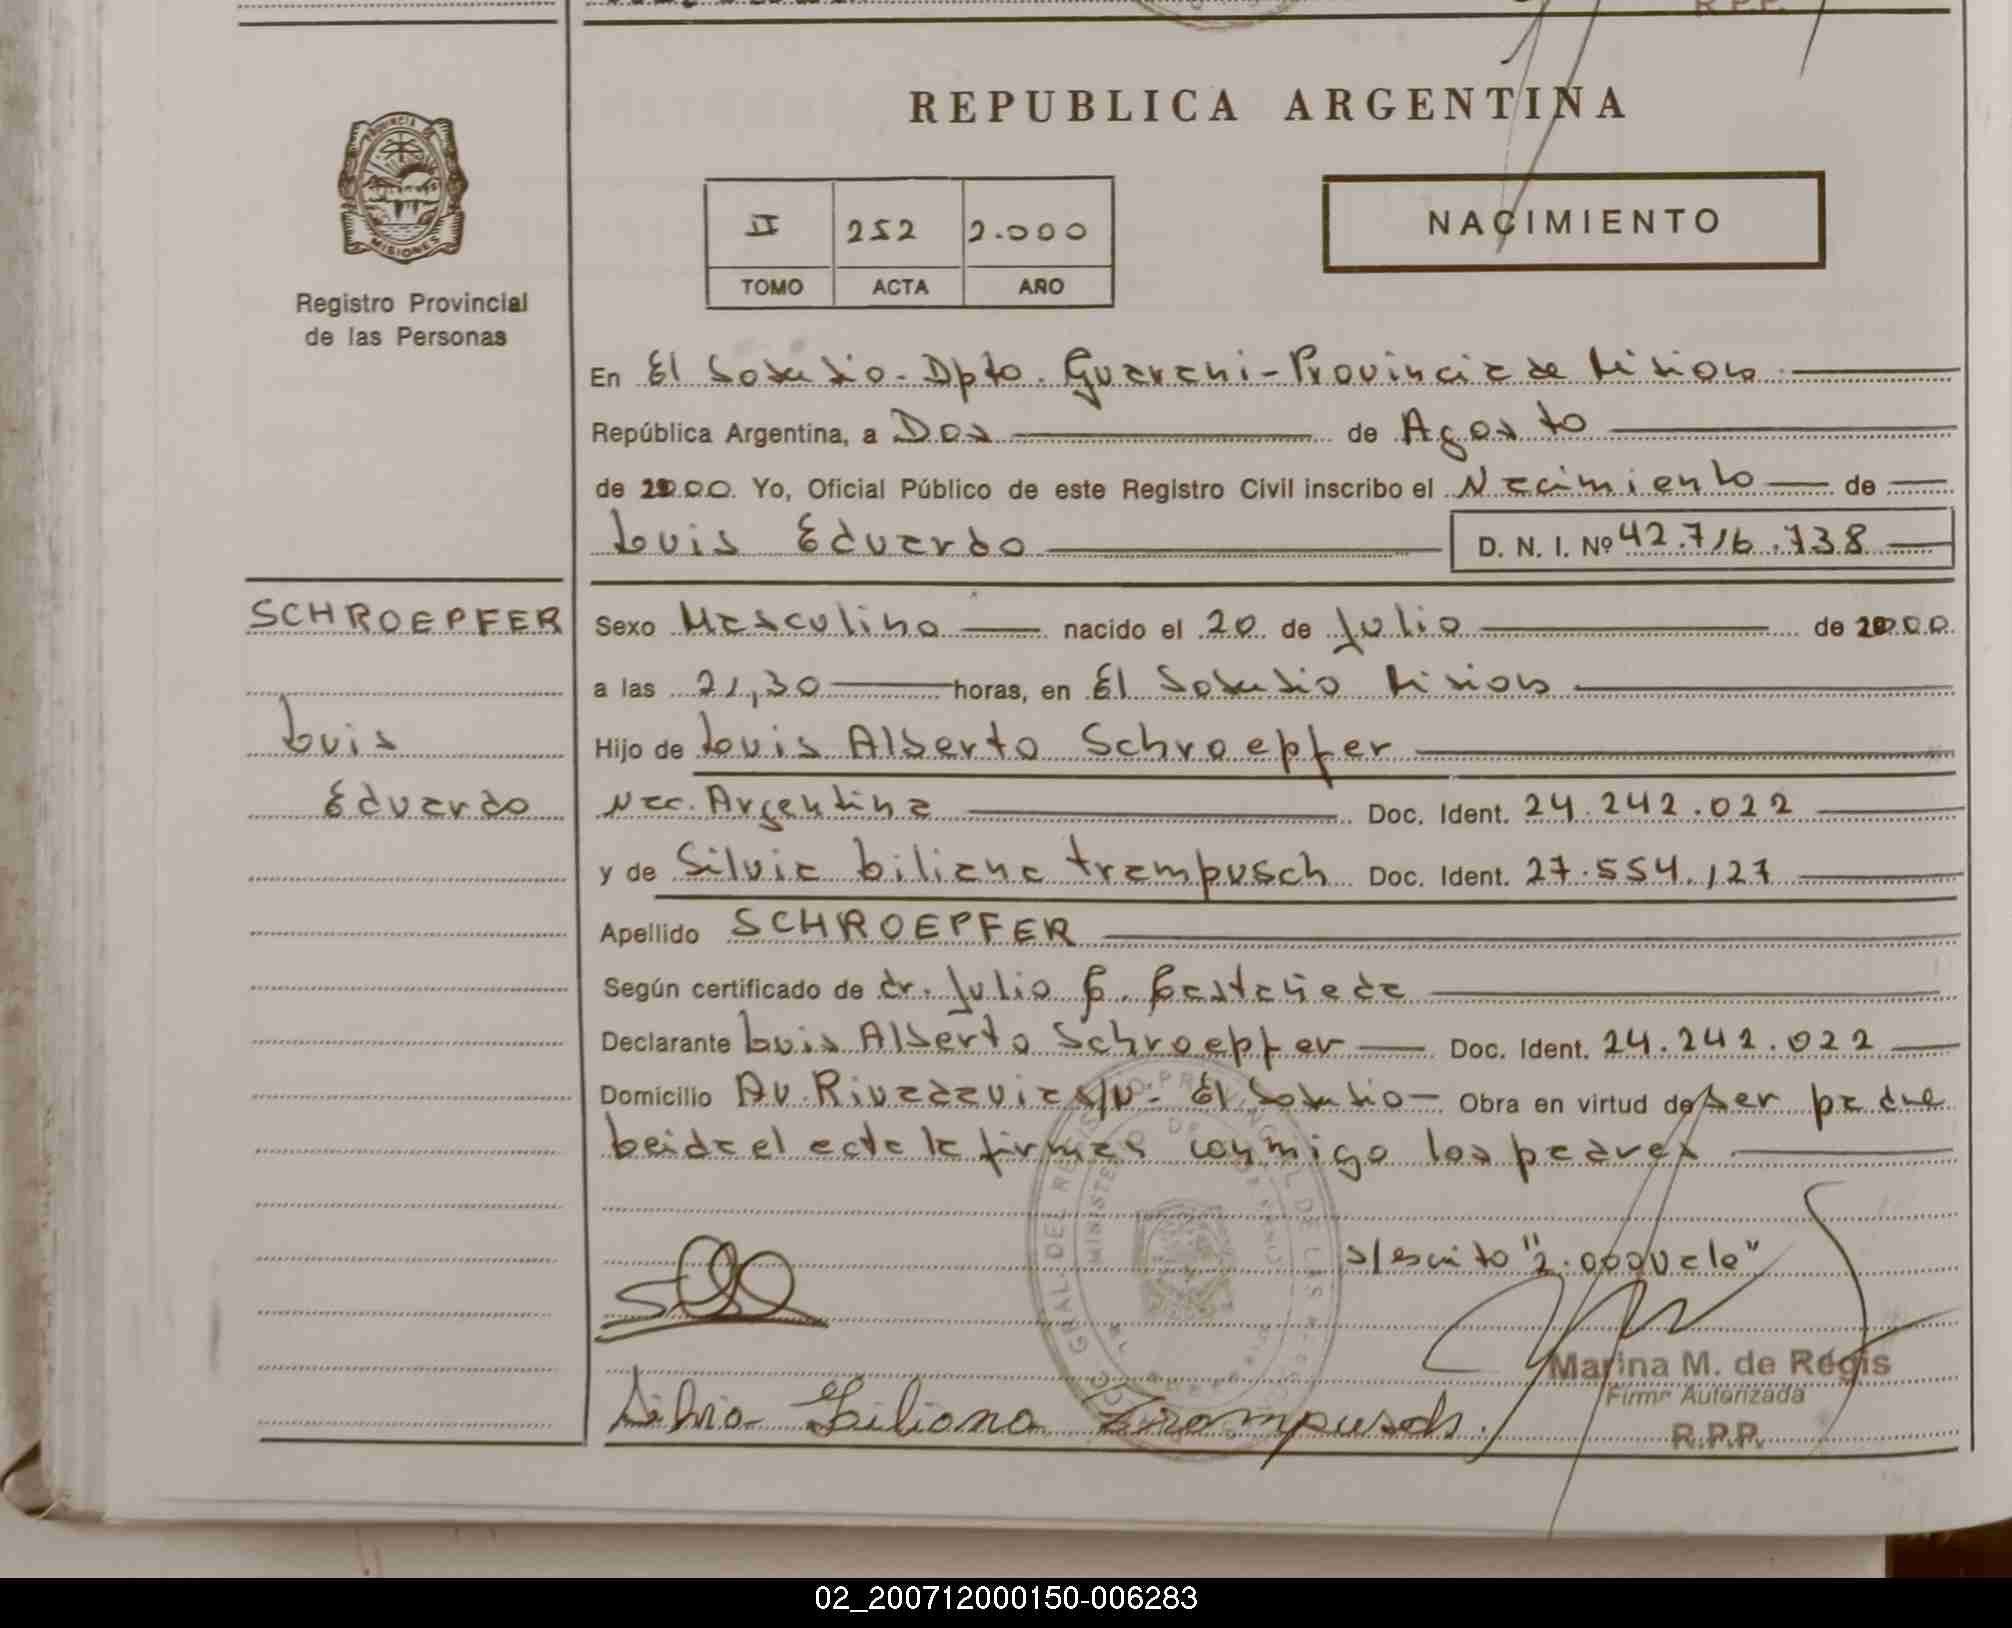 REPUBLICA ARGENTINA
PROVINCIA DE
MISIONES
Registro Provincial
de las Personas
II 252 2.000
TOMO ACTA AÑO
NACIMIENTO
En El Soberbio - Dpto. Guarani - Provincia de Misiones
República Argentina, a Dos de Agosto
de 2000. Yo, Oficial Público de este Registro Civil inscribo el Nacimiento de
Luis Eduardo D. N. I. Nº 42.716.738
SCHROEPFER
Luis
Eduardo
Sexo Masculino nacido el 20 de Julio de 2000
a las 21,30 horas, en El Soberbio Misiones
Hijo de Luis Alberto Schroepfer
Nac. Argentina Doc. Ident. 24.242.022
y de Silvia Liliana Trampusch Doc. Ident. 27.554.127
Apellido SCHROEPFER
Según certificado de dr. Julio C. Castañeda
Declarante Luis Alberto Schroepfer Doc. Ident. 24.242.022
Domicilio Av. Rivadavia s/n - El Soberbio - Obra en virtud de ser padre
Leida el acta la firman conmigo los padres
s/escrito "2.000 Vale"
Silvia Liliana Trampusch.
Marina M. de Regis
Firma Autorizada
R.P.P.
02_200712000150-006283